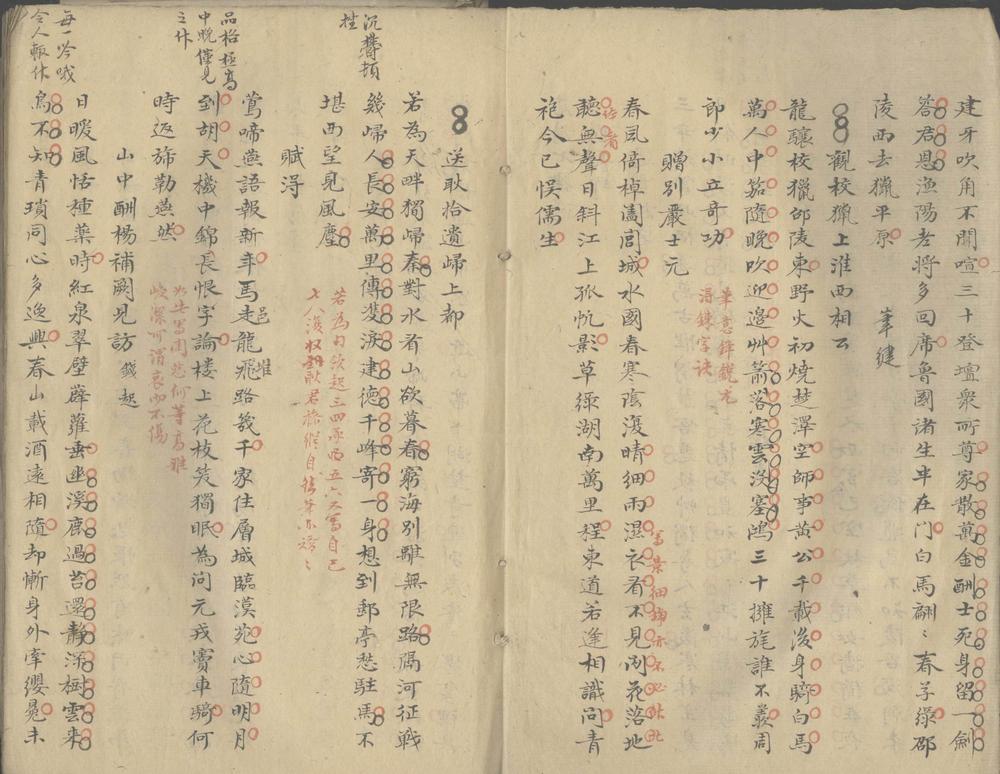 建牙吹角不聞喧三十登壇衆所尊家散萬金酬士死身留一劍
答君恩漁陽老將多回席魯國諸生半在門白馬翩〻春子綠邵
陵西去獵平原
筆健
觀校獵上淮西相公
龍驤校獵邵陵東野火初燒楚澤空師事黃公千載後身騎白馬
萬人中笳隨晚吹迎邊艸箭落寒雲沒塞鴻三十擁旄誰不羨周
郎少小立奇功
筆意鋒銳尤
得鍊字訣
贈別嚴士元
春風倚棹闔閭城水國春寒陰復晴細雨濕衣看不見閒花落地
寫景細
聽無聲日斜江上孤帆影草綠湖南萬里程東道若逢相識問青
袍今已悞儒生
送耿拾遺歸上都
若為天畔獨歸秦對水看山欲暮春窮海別離無限路隔河征戰
沉鬱頓
挫
幾歸人長安萬里傳雙淚建德千峰寄一身想到郵亭愁駐馬不
堪西望見風塵
若為句欲起三四兩西五六又寫自己
七八復收到耿君
賦得
鶯啼燕語報新年馬邑龍堆路幾千家住層城臨漠苑心隨明月
品格極高
中晚僅見
之作
到胡天機中錦長恨字論樓上花枝笑獨眠為問元戎竇車騎何
時返旆勒燕然
如此寫閨怨何等高雅
峻深可謂哀而不傷
山中酬楊補闕見訪
錢起
日暖風恬種藥時紅泉翠壁薜蘿垂幽溪鹿過苔還靜深樹雲來
每一吟哦
令人輒休
鳥不知青瑣同心多逸興春山載酒遠相隨却慚身外牽纓冕未